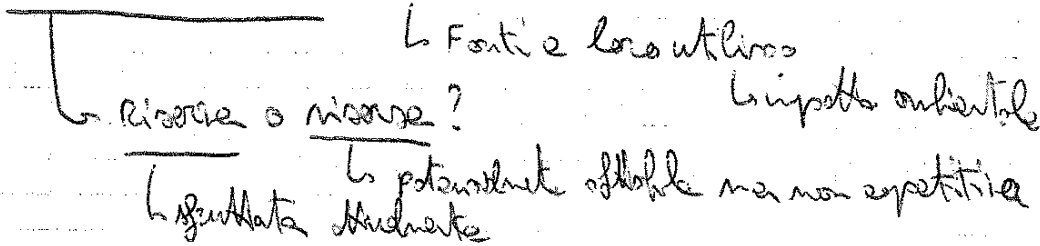 ↳ Fonti e loro utilizzo
↳ impatto ambientale
↳ Riserva o risorsa?
↳ potenzialmente sfruttabile ma non appetitiva
↳ sfruttata attualmente